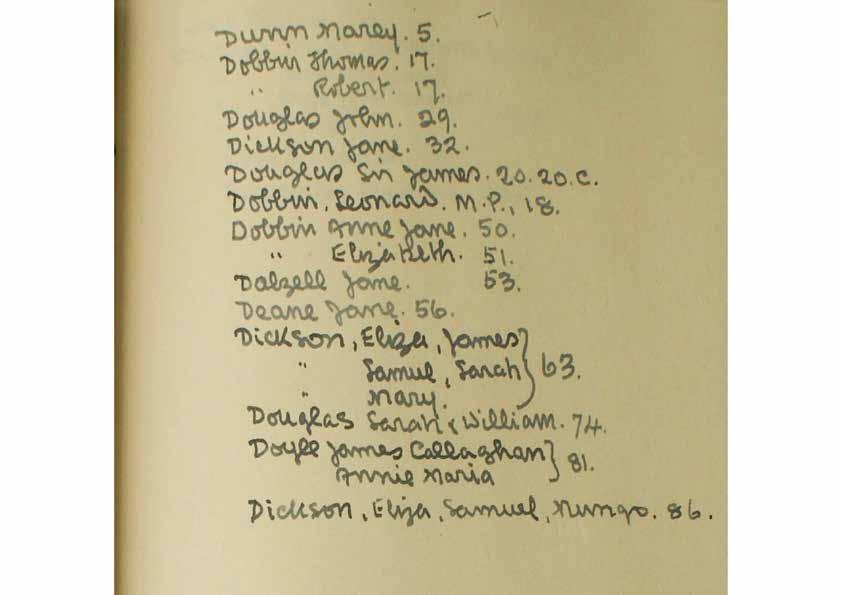 Dunn Marey. 5.
Dobbin Thomas. 17.
" Robert. 17.
Douglas John. 29.
Dickson Jane. 32.
Douglas Sir James. 20. 20.C.
Dobbin, Leonard. M.P., 18.
Dobbin Anne Jane. 50.
" Elizabeth. 51.
Dalzell Jane. 53.
Deane Jane. 56.
Dickson, Eliza, James
" Samuel, Sarah } 63.
" Mary.
Douglas Sarah & William. 74.
Doyle James Callaghan } 81.
Annie Maria
Dickson, Eliza, Samuel, Mungo. 86.